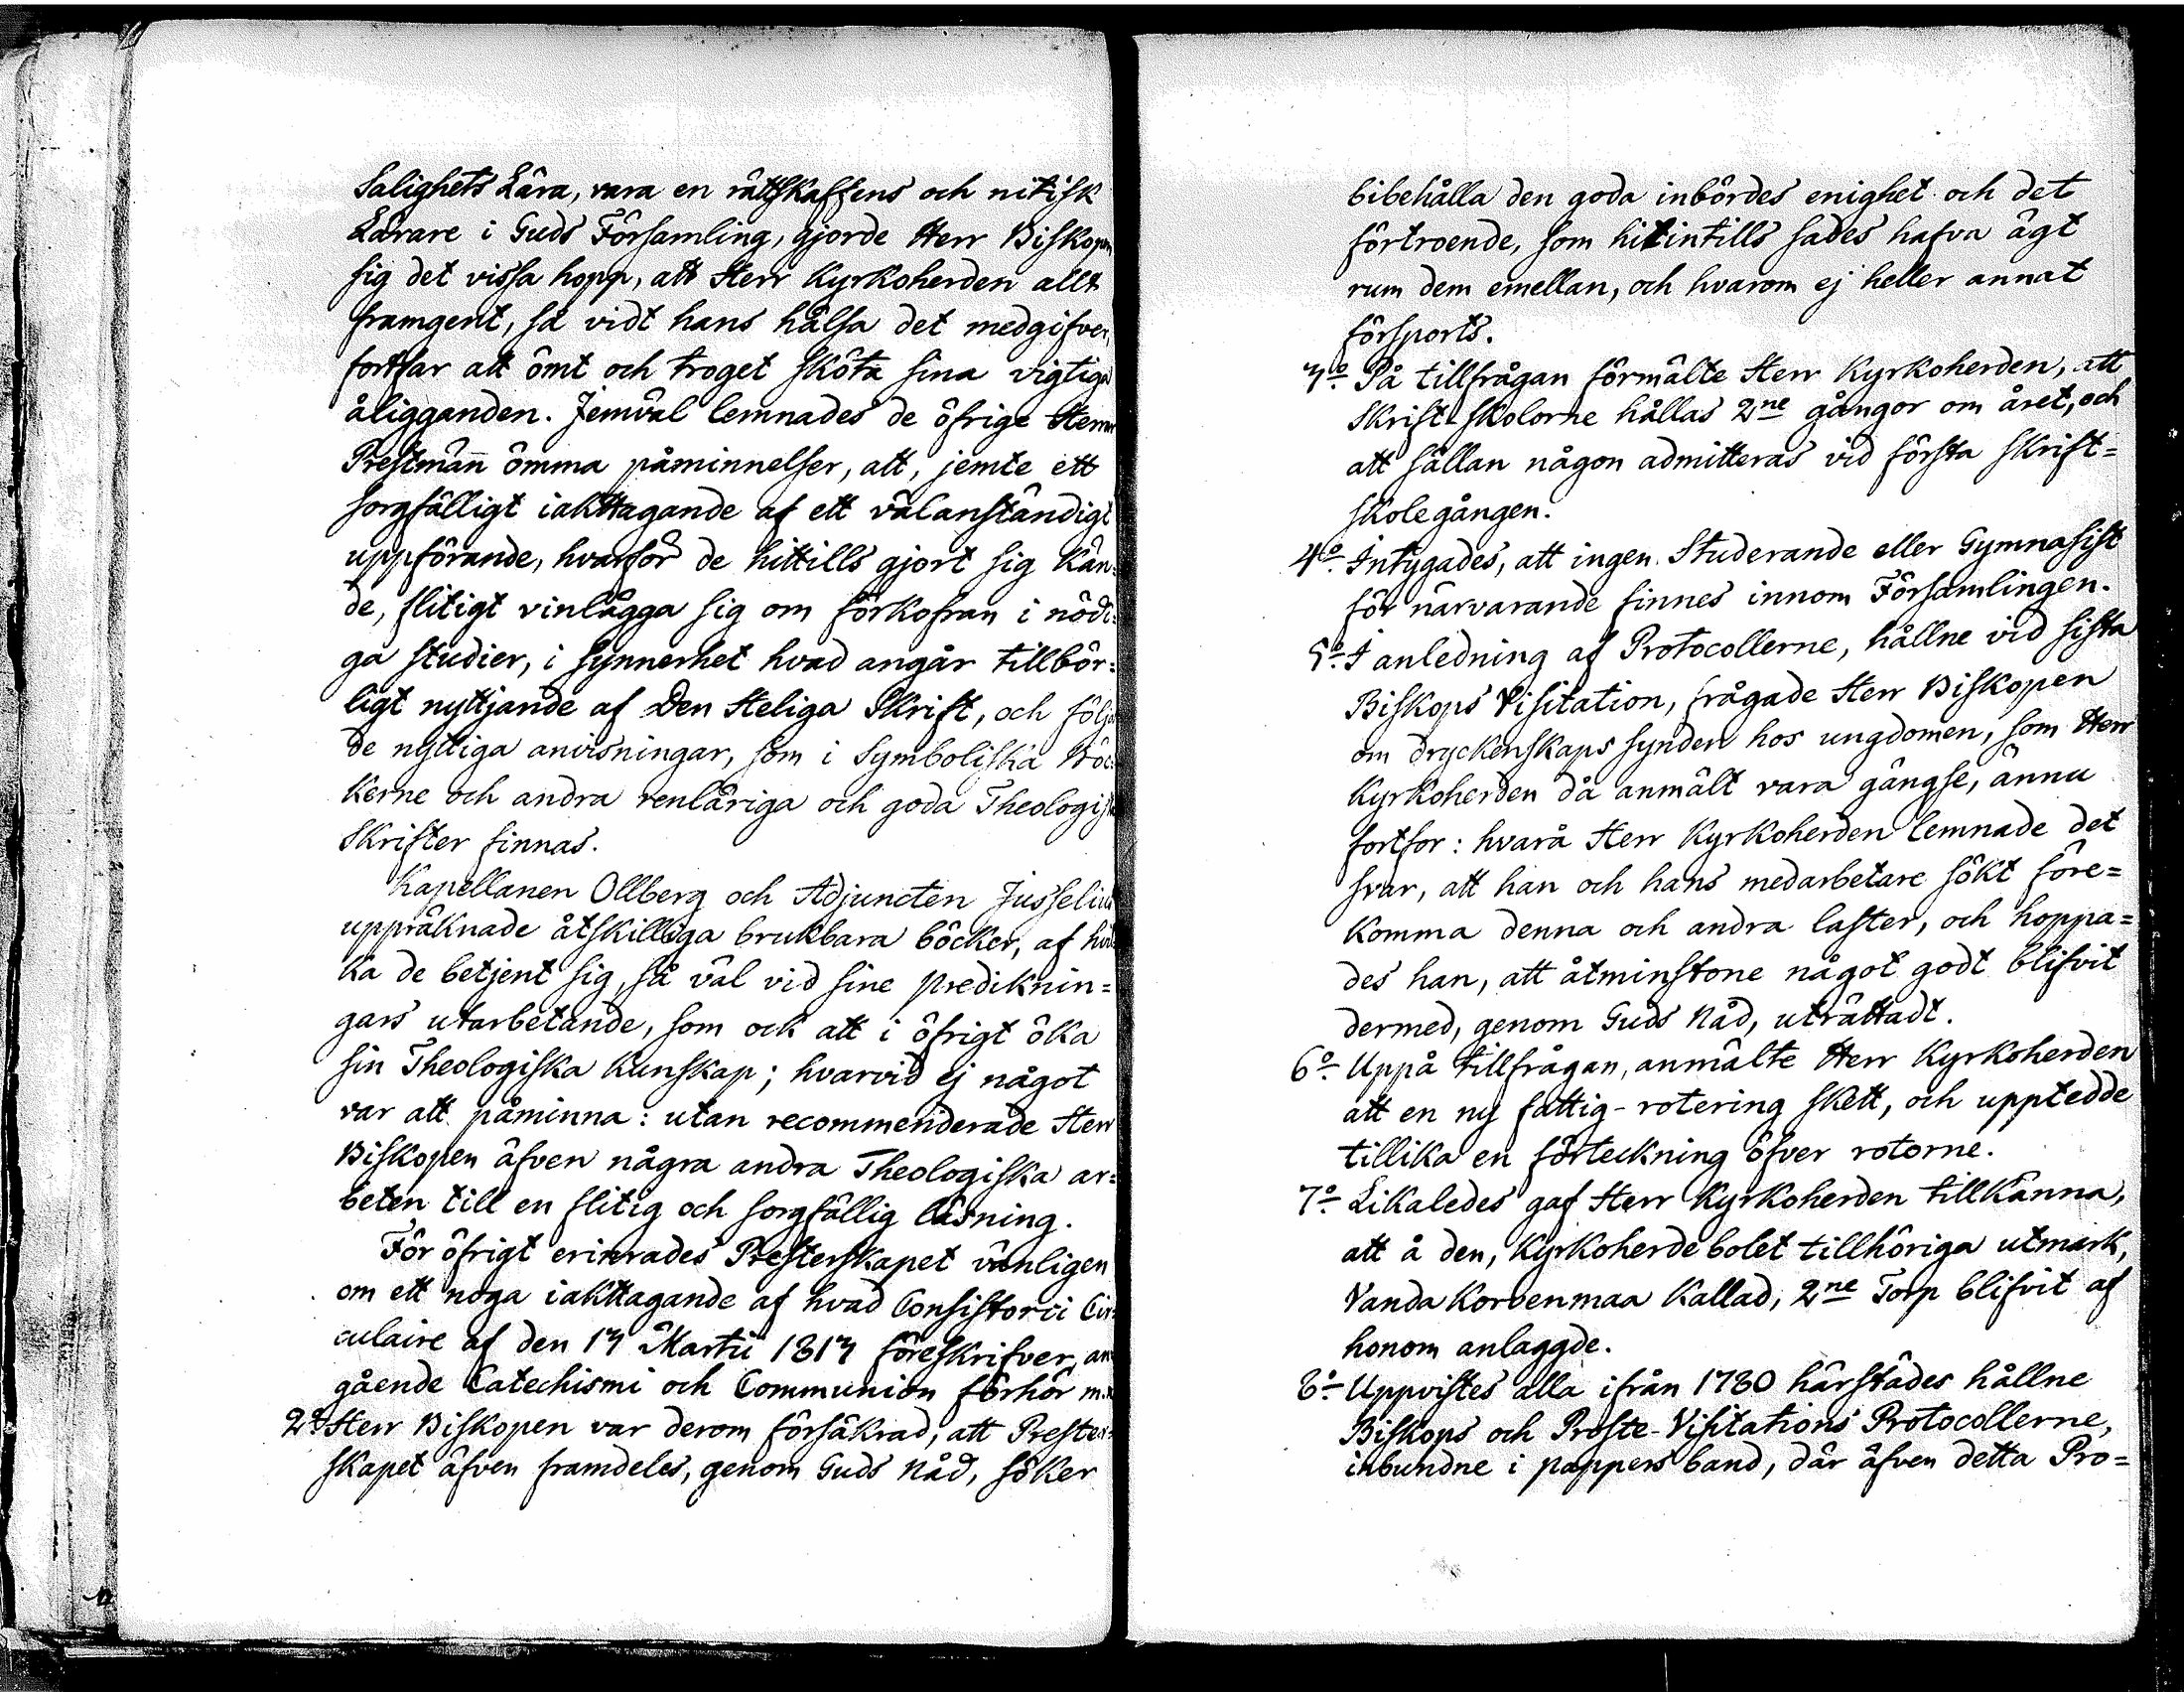 Salighets Lära, vara en rättskaffens och nitisk
Lärare i Guds Församling, gjorde Herr Biskopen
sig det vissa hopp, att Herr Kyrkoherden allt
framgent, så vidt hans hälsa det medgifver,
fortfar att ömt och troget sköta sina vigtiga
åligganden. Jemväl lemnades de öfrige Herrar
Prestmän ömma påminnelser, att, jemte ett
sorgfälligt iakttagande af ett välanständigt
uppförande, hvarför de hittills gjort sig kän=
de, flitigt vinlägga sig om förkofran i nödi=
ga studier, i synnerhet hvad angår tillbör=
ligt nyttjande af Den Heliga Skrift, och följa
de nyttiga anvisningar, som i Symboliska Böc=
kerne och andra renläriga och goda Theologiska
Skrifter finnas.
Kapellanen Ollberg och Adjuncten Jusselius
uppräknade åtskilliga brukbara böcker, af hvil
ka de betjent sig, så väl vid sine prediknin=
gars utarbetande, som ock att i öfrigt öka
sin Theologiska kunskap; hvarvid ej något
var att påminna: utan recommenderade Herr
Biskopen äfven några andra Theologiska ar=
beten till en flitig och sorgfällig läsning.
För öfrigt erinrades Presterskapet vänligen
om ett noga iakttagande af hvad Consistorii Cir=
culaire af den 17 Martii 1817 föreskrifver, an
gående Catechismi och Communion förhör m.m.
2º Herr Biskopen var derom försäkrad, att Prester=
skapet äfven framdeles, genom Guds Nåd, söker
bibehålla den goda inbördes enighet och det
förtroende, som hitintills sades hafva ägt
rum dem emellan, och hvarom ej heller annat
försports.
3º På tillfrågan förmälte Herr Kyrkoherden, att
Skrift-skolorne hållas 2ne gångor om året, och
att sällan någon admitteras vid första skrift=
skolegången.
4º Intygades, att ingen Studerande eller Gymnasist
för närvarande finnes innom Församlingen.
5º I anledning af Protocollerne, hållne vid sista
Biskops Visitation, frågade Herr Biskopen
om dryckenskaps synden hos ungdomen, som Herr
Kyrkoherden då anmält vara gängse, ännu
fortfor: hvarå Herr Kyrkoherden lemnade det
svar, att han och hans medarbetare sökt före=
komma denna och andra laster, och hoppa=
des han, att åtminstone något godt blifvit
dermed, genom Guds Nåd, uträttadt.
6º Uppå tillfrågan, anmälte Herr Kyrkoherden
att en ny fattig-rotering skett, och upptedde
tillika en förteckning öfver rotorne.
7º Likaledes gaf Herr Kyrkoherden tillkänna,
att å den, Kyrkoherdebolet tillhöriga utmark,
Vanda Korvenmaa kallad, 2ne Torp blifvit af
honom anlaggde.
8º Uppvistes alla ifrån 1780 härstädes hållne
Biskops och Proste-Visitations Protocollerne,
inbundne i pappers band, där äfven detta Pro=